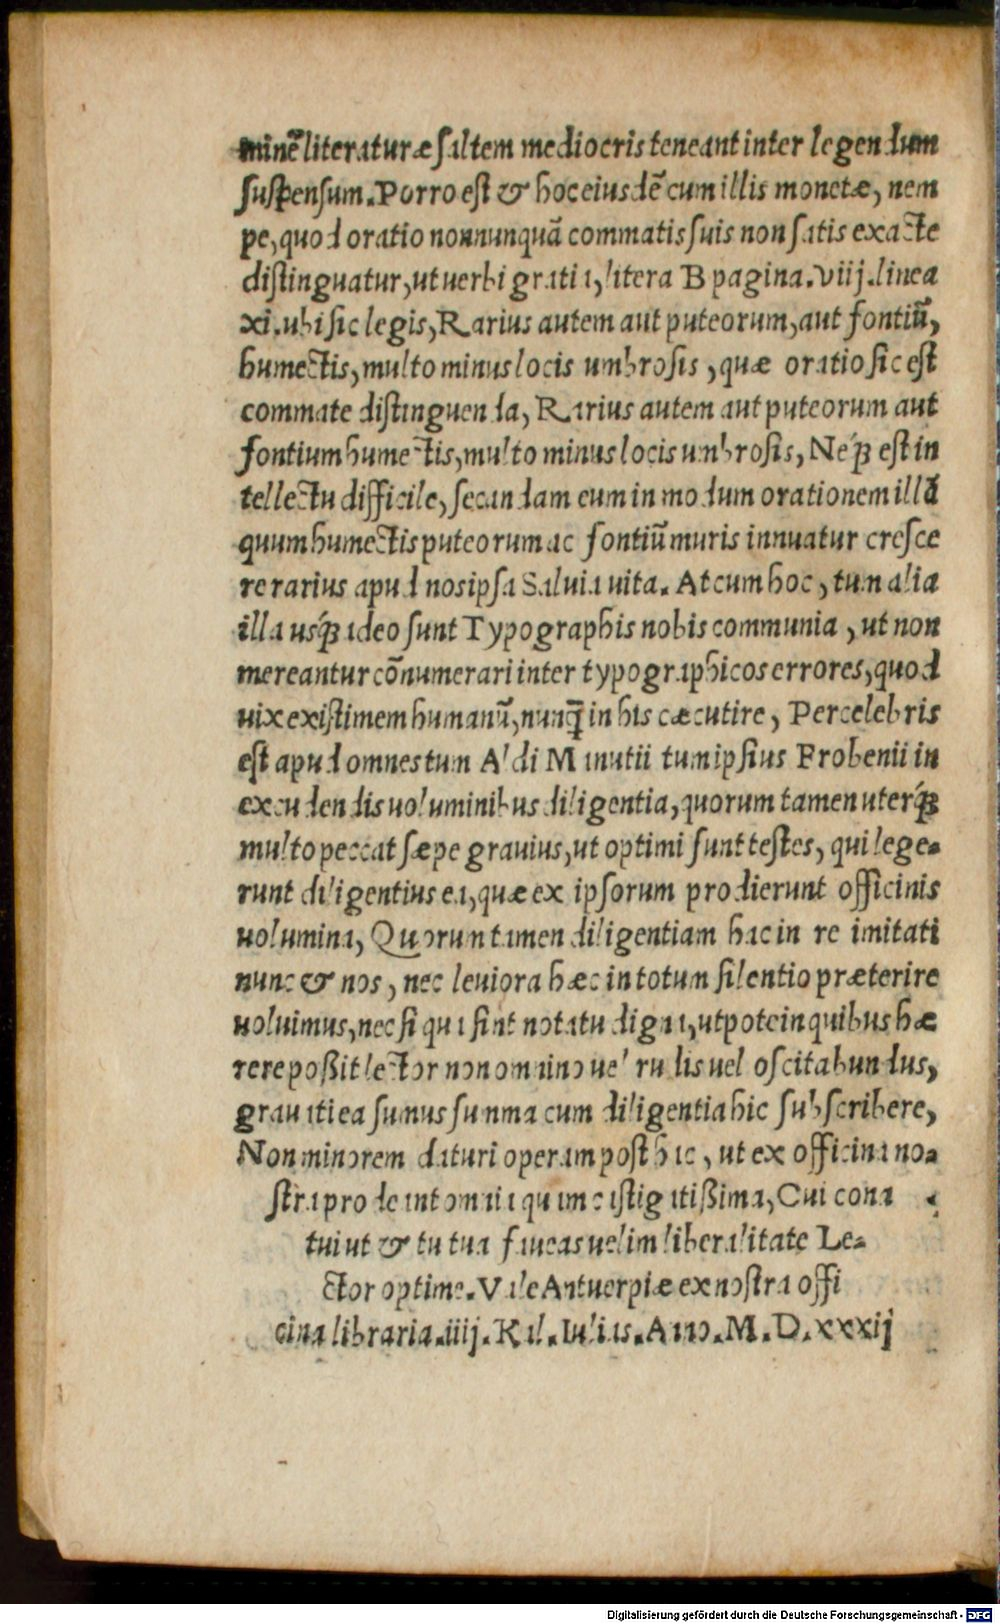 minē literaturæ saltem mediocris teneant inter legendum
suspensum. Porro est & hoc eiusdē cum illis monetæ, nem
pe, quod oratio nonnunquā commatis suis non satis exacte
distinguatur, ut uerbi gratia, litera B pagina. viij. linea
xi. ubi sic legis, Rarius autem aut puteorum, aut fontiū,
humectis, multo minus locis umbrosis, quæ oratio sic est
commate distinguenda, Rarius autem aut puteorum aut
fontium humectis, multo minus locis umbrosis, Neq́ꝫ est in
tellectu difficile, secandam eum in modum orationem illā
quum humectis puteorum ac fontiū muris innuatur cresce
re rarius apud nos ipsa Saluia uita. At cum hoc, tum alia
illa usq́ꝫ adeo sunt Typographis nobis communia, ut non
mereantur cōnumerari inter typographicos errores, quod
uix existimem humanū, nunq̄ in his cæcutire, Percelebris
est apud omnes tum Aldi Manutii tum ipsius Frobenii in
excudendis uoluminibus diligentia, quorum tamen uterq́ꝫ
multo peccat sæpe grauius, ut optimi sunt testes, qui lege-
runt diligentius ea, quæ ex ipsorum prodierunt officinis
uolumina, Quorum tamen diligentiam hac in re imitati
nunc & nos, nec leuiora hæc in totum silentio præterire
uoluimus, nec si qua sint notatu digna, utpote in quibus hæ
rere poßit lector non omnino uel rudis uel oscitabundus,
grauati ea sumus summa cum diligentia hic subscribere,
Non minorem daturi operam posthac, ut ex officina no-
stra prodeant omnia quam castigatißima, Cui cona
tui ut & tu tua faueas uelim liberalitate Le-
ctor optime. Vale Antuerpiæ ex nostra offi
cina libraria. iiij. Kal. Iulias. Anno. M. D. xxxij
Digitalisierung gefördert durch die Deutsche Forschungsgemeinschaft - DFG